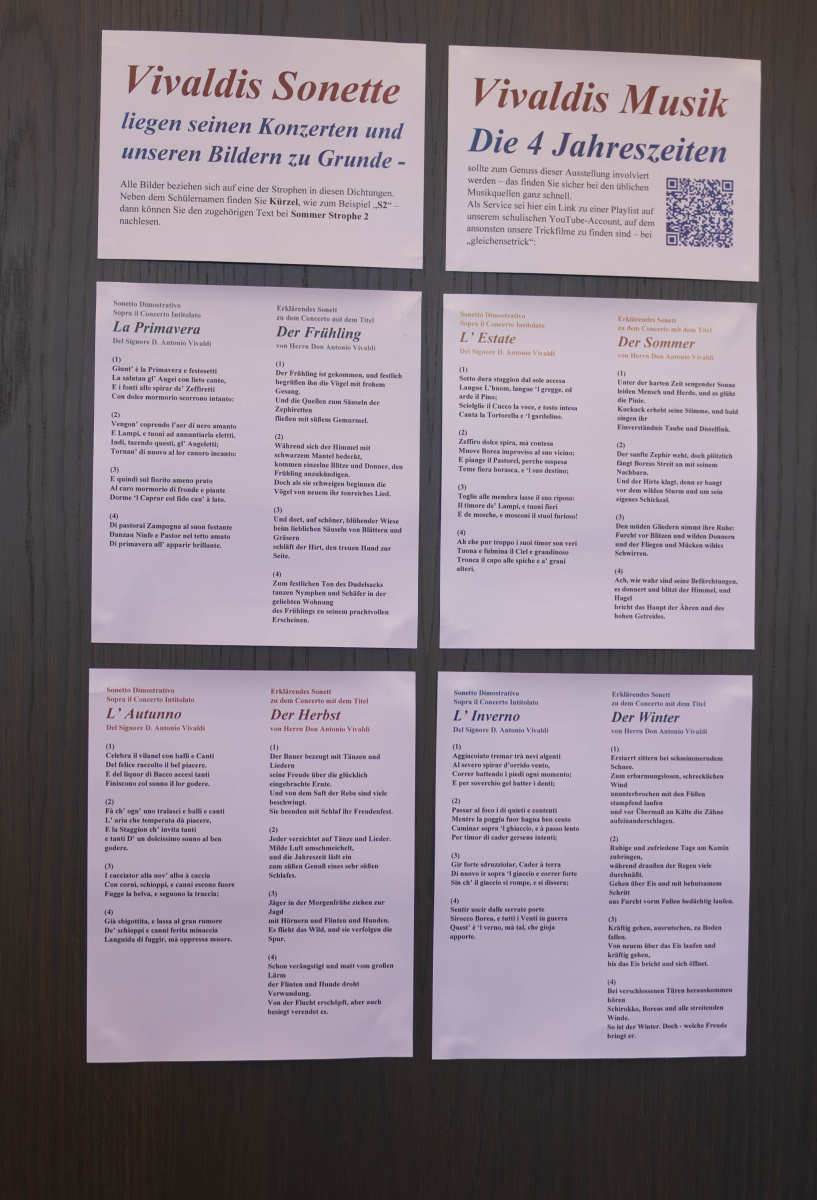 Vivaldis Sonette
liegen seinen Konzerten und
unseren Bildern zu Grunde -
Alle Bilder beziehen sich auf eine der Strophen in diesen Dichtungen.
Neben dem Schülernamen finden Sie Kürzel, wie zum Beispiel „S2“ –
dann können Sie den zugehörigen Text bei Sommer Strophe 2
nachlesen.
Vivaldis Musik
Die 4 Jahreszeiten
sollte zum Genuss dieser Ausstellung involviert
werden – das finden Sie sicher bei den üblichen
Musikquellen ganz schnell.
Als Service sei hier ein Link zu einer Playlist auf
unserem schulischen YouTube-Account, auf dem
ansonsten unsere Trickfilme zu finden sind – bei
„gleichensetrick“:
Sonetto Dimostrativo
Sopra il Concerto Intitolato
La Primavera
Del Signore D. Antonio Vivaldi
(1)
Giunt' è la Primavera e festosetti
La salutan gl' Augei con lieto canto,
E i fonti allo spirar de' Zeffiretti
Con dolce mormorio scorrono intanto:
(2)
Vengon' coprendo l'aer di nero amanto
E Lampi, e tuoni ad annuntiarla elettti.
Indi, tacendo questi, gl' Augeletti;
Tornan' di nuovo al lor canoro incanto:
(3)
E quindi sul fiorito ameno prato
Al caro mormorio di fronde e piante
Dorme 'l Caprar col fido can' à lato.
(4)
Di pastoral Zampogna al suon festante
Danzan Ninfe e Pastor nel tetto amato
Di primavera all' apparir brillante.
Erklärendes Sonett
zu dem Concerto mit dem Titel
Der Frühling
von Herrn Don Antonio Vivaldi
(1)
Der Frühling ist gekommen, und festlich
begrüßen ihn die Vögel mit frohem
Gesang.
Und die Quellen zum Säuseln der
Zephiretten
fließen mit süßem Gemurmel.
(2)
Während sich der Himmel mit
schwarzem Mantel bedeckt,
kommen einzelne Blitze und Donner, den
Frühling anzukündigen.
Doch als sie schweigen beginnen die
Vögel von neuem ihr tonreiches Lied.
(3)
Und dort, auf schöner, blühender Wiese
beim lieblichen Säuseln von Blättern und
Gräsern
schläft der Hirt, den treuen Hund zur
Seite.
(4)
Zum festlichen Ton des Dudelsacks
tanzen Nymphen und Schäfer in der
geliebten Wohnung
des Frühlings zu seinem prachtvollen
Erscheinen.
Sonetto Dimostrativo
Sopra il Concerto Intitolato
L' Estate
Del Signore D. Antonio Vivaldi
(1)
Sotto dura staggion dal sole accesa
Langue L'huom, langue 'l gregge, ed
arde il Pino;
Scioglie il Cucco la voce, e tosto intesa
Canta la Tortorella e 'l gardelino.
(2)
Zeffiro dolce spira, mà contesa
Muove Borea improviso al suo vicino;
E piange il Pastorel, perche sospesa
Teme fiera borasca, e 'l suo destino;
(3)
Toglie alle membra lasse il suo riposo:
Il timore de' Lampi, e tuoni fieri
E de mosche, e mosconi il stuol furioso!
(4)
Ah che pur troppo i suoi timor son veri
Tuona e fulmina il Ciel e grandinoso
Tronca il capo alle spiche e a' grani
alteri.
Erklärendes Sonett
zu dem Concerto mit dem Titel
Der Sommer
von Herrn Don Antonio Vivaldi
(1)
Unter der harten Zeit sengender Sonne
leiden Mensch und Herde, und es glüht
die Pinie.
Kuckuck erhebt seine Stimme, und bald
singen ihr
Einverständnis Taube und Distelfink.
(2)
Der sanfte Zephir weht, doch plötzlich
fängt Boreas Streit an mit seinem
Nachbarn.
Und der Hirte klagt, denn er bangt
vor dem wilden Sturm und um sein
eigenes Schicksal.
(3)
Den müden Gliedern nimmt ihre Ruhe:
Furcht vor Blitzen und wilden Donnern
und der Fliegen und Mücken wildes
Schwirren.
(4)
Ach, wie wahr sind seine Befürchtungen,
es donnert und blitzt der Himmel, und
Hagel
bricht das Haupt der Ähren und des
hohen Getreides.
Sonetto Dimostrativo
Sopra il Concerto Intitolato
L' Autunno
Del Signore D. Antonio Vivaldi
(1)
Celebra il vilanel con balli e Canti
Del felice raccolto il bel piacere.
E del liquor di Bacco accesi tanti
Finiscono col sonno il lor godere.
(2)
Fà ch' ogn' uno tralasci e balli e canti
L' aria che temperata dà piacere,
E la Staggion ch' invita tanti
e tanti D' un dolcissimo sonno al ben
godere.
(3)
I cacciator alla nov' alba à caccia
Con corni, schioppi, e canni escono fuore
Fugge la belva, e seguono la traccia;
(4)
Già sbigottita, e lassa al gran rumore
De' schioppi e canni ferita minaccia
Languida di fuggir, mà oppressa muore.
Erklärendes Sonett
zu dem Concerto mit dem Titel
Der Herbst
von Herrn Don Antonio Vivaldi
(1)
Der Bauer bezeugt mit Tänzen und
Liedern
seine Freude über die glücklich
eingebrachte Ernte.
Und von dem Saft der Rebe sind viele
beschwingt.
Sie beenden mit Schlaf ihr Freudenfest.
(2)
Jeder verzichtet auf Tänze und Lieder.
Milde Luft umschmeichelt,
und die Jahreszeit lädt ein
zum süßen Genuß eines sehr süßen
Schlafes.
(3)
Jäger in der Morgenfrühe ziehen zur
Jagd
mit Hörnern und Flinten und Hunden.
Es flieht das Wild, und sie verfolgen die
Spur.
(4)
Schon verängstigt und matt vom großen
Lärm
der Flinten und Hunde droht
Verwundung.
Von der Flucht erschöpft, aber auch
besiegt verendet es.
Sonetto Dimostrativo
Sopra il Concerto Intitolato
L' Inverno
Del Signore D. Antonio Vivaldi
(1)
Aggiacoiato tremar trà nevi algenti
Al severo spirar d'orrido vento,
Correr battendo i piedi ogni momento;
E per soverchio gel batter i denti;
(2)
Passar al foco i di quieti e contenti
Mentre la poggia fuor bagna ben cento
Caminar sopra 'l ghiaccio, e à passo lento
Per timor di cader gersene intenti;
(3)
Gir forte sdruzziolar, Cader à terra
Di nuovo ir sopra 'l giaccio e correr forte
Sin ch' il giaccio si rompe, e si dissera;
(4)
Sentir uscir dalle serrate porte
Sirocco Borea, e tutti i Venti in guerra
Quest' è 'l verno, mà tal, che gioja
apporte.
Erklärendes Sonett
zu dem Concerto mit dem Titel
Der Winter
von Herrn Don Antonio Vivaldi
(1)
Erstarrt zittern bei schmimmerndem
Schnee.
Zum erbarmungslosen, schrecklichen
Wind
ununterbrochen mit den Füßen
stampfend laufen
und vor Übermaß an Kälte die Zähne
aufeinanderschlagen.
(2)
Ruhige und zufriedene Tage am Kamin
zubringen,
während draußen der Regen viele
durchnäßt.
Gehen über Eis und mit behutsamem
Schritt
aus Furcht vorm Fallen bedächtig laufen.
(3)
Kräftig gehen, ausrutschen, zu Boden
fallen.
Von neuem über das Eis laufen und
kräftig gehen,
bis das Eis bricht und sich öffnet.
(4)
Bei verschlossenen Türen herauskommen
hören
Schirokko, Boreas und alle streitenden
Winde.
So ist der Winter. Doch - welche Freude
bringt er.